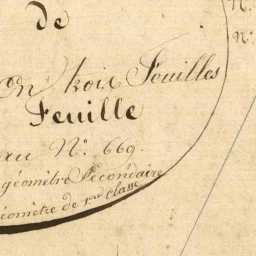 de
N.
N.
En trois Feuilles
Feuille
au N.° 669.
géomètre Secondaire
éomètre de 1.ere Classe